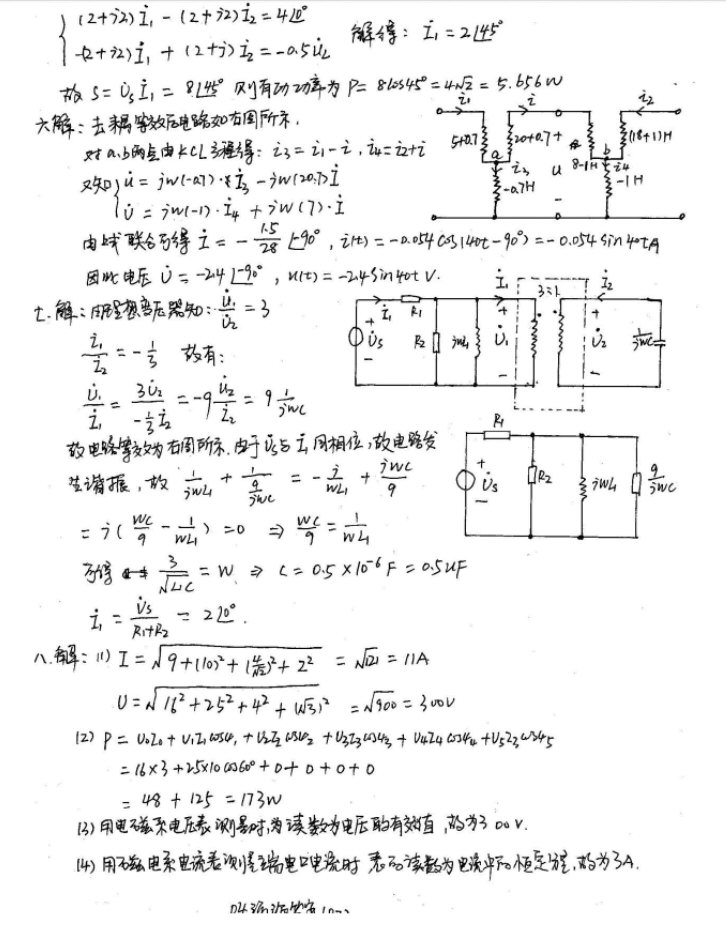 (2+j2)İ₁ - (2+j2)İ₂ = 4∠0° 解得: İ₁ = 2∠45°
-(2+j2)İ₁ + (2+j)İ₂ = -0.5U̇₂
故 S = U̇ₛİ₁ = 8∠45° 则有功功率为 P = 8cos45° = 4√2 = 5.656W
六.解: 去耦等效后电路如右图所示,
对a.b两点由KCL方程得: i₃ = i₁ - i, i₄ = i₂ + i
又知 u̇ = jw(-0.7)·İ₃ - jw(20.7)İ
U̇ = jw(-1)·İ₄ + jw(7)·İ
由上式联合可得 İ = - 1.5/28 ∠-90°, i(t) = -0.054cos(40t-90°) = -0.054 sin40t A
因此电压 U̇ = -2.4∠-90°, u(t) = -2.4sin40t V.
i₁ i i₂
5+0.7 20+0.7 + 8-1H (18+1)H
a i₃ u b i₄
-0.7H - -1H
七.解: 由理想变压器知: U̇₁/U̇₂ = 3
İ₁/İ₂ = -1/3 故有:
U̇₁/İ₁ = 3U̇₂/(-1/3 İ₂) = -9 U̇₂/İ₂ = 9 1/jwC
İ₁ R₁ İ₁ 3:1 İ₂
+ U̇ₛ - R₂ jwL₁ + U̇₁ - + U̇₂ - 1/jwC
故电路等效为右图所示, 由于U̇ₛ与İ₁同相位, 故电路发
生谐振, 故 1/jwL₁ + 1/(9/jwC) = -j/wL₁ + jwC/9
= j(wC/9 - 1/wL₁) = 0 ⇒ wC/9 = 1/wL₁
可得 3/√L₁C = w ⇒ C = 0.5×10⁻⁶F = 0.5uF
İ₁ = U̇ₛ/(R₁+R₂) = 2∠0°.
R₁
+ U̇ₛ - R₂ jwL₁ 9/jwC
八.解: (1) I = √(9+(10)²+(4/√2)²+2²) = √121 = 11A
U = √(16²+25²+4²+(√3)²) = √900 = 300V
(2) P = U₀I₀ + U₁I₁cosφ₁ + U₂I₂cosφ₂ + U₃I₃cosφ₃ + U₄I₄cosφ₄ + U₅I₅cosφ₅
= 16×3 + 25×10cos60° + 0 + 0 + 0 + 0
= 48 + 125 = 173W
(3) 用电磁系电压表测量时,为读数为电压的有效值, 故为300V.
(4) 用磁电系电流表测量端口电流时 表的读数为电流中的恒定分量, 故为3A.